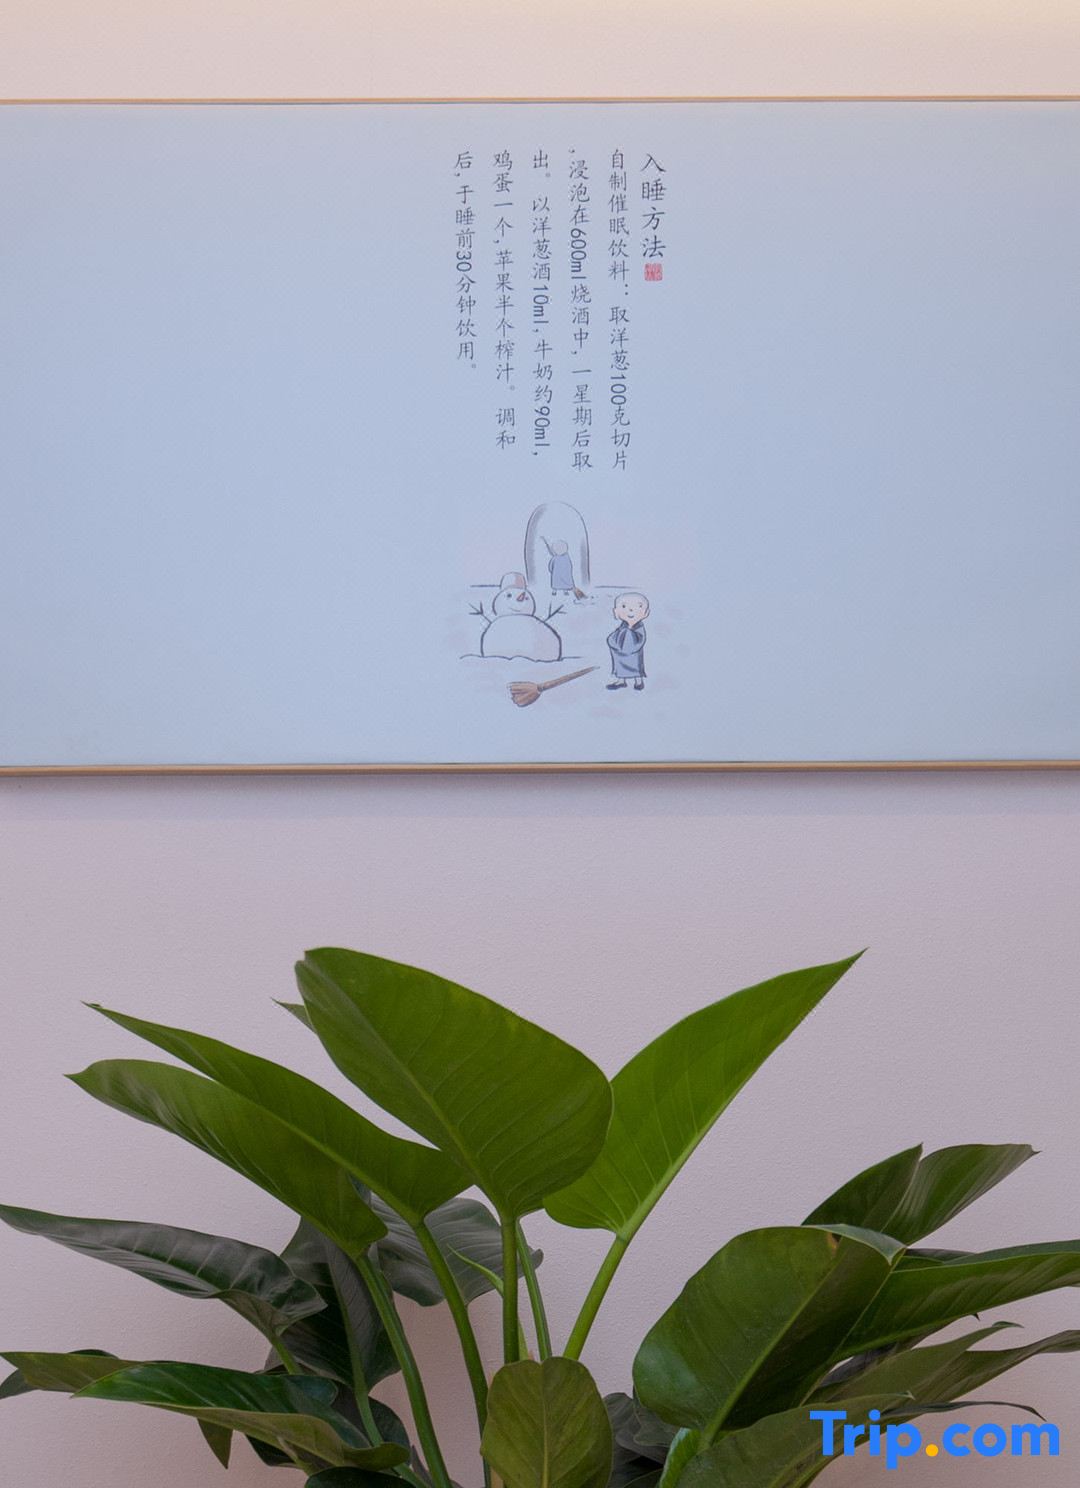 入睡方法
自制催眠饮料：取洋葱100克切片
，浸泡在600ml烧酒中，一星期后取
出。以洋葱酒10ml，牛奶约90ml，
鸡蛋一个，苹果半个榨汁。调和
后，于睡前30分钟饮用。
Trip.com